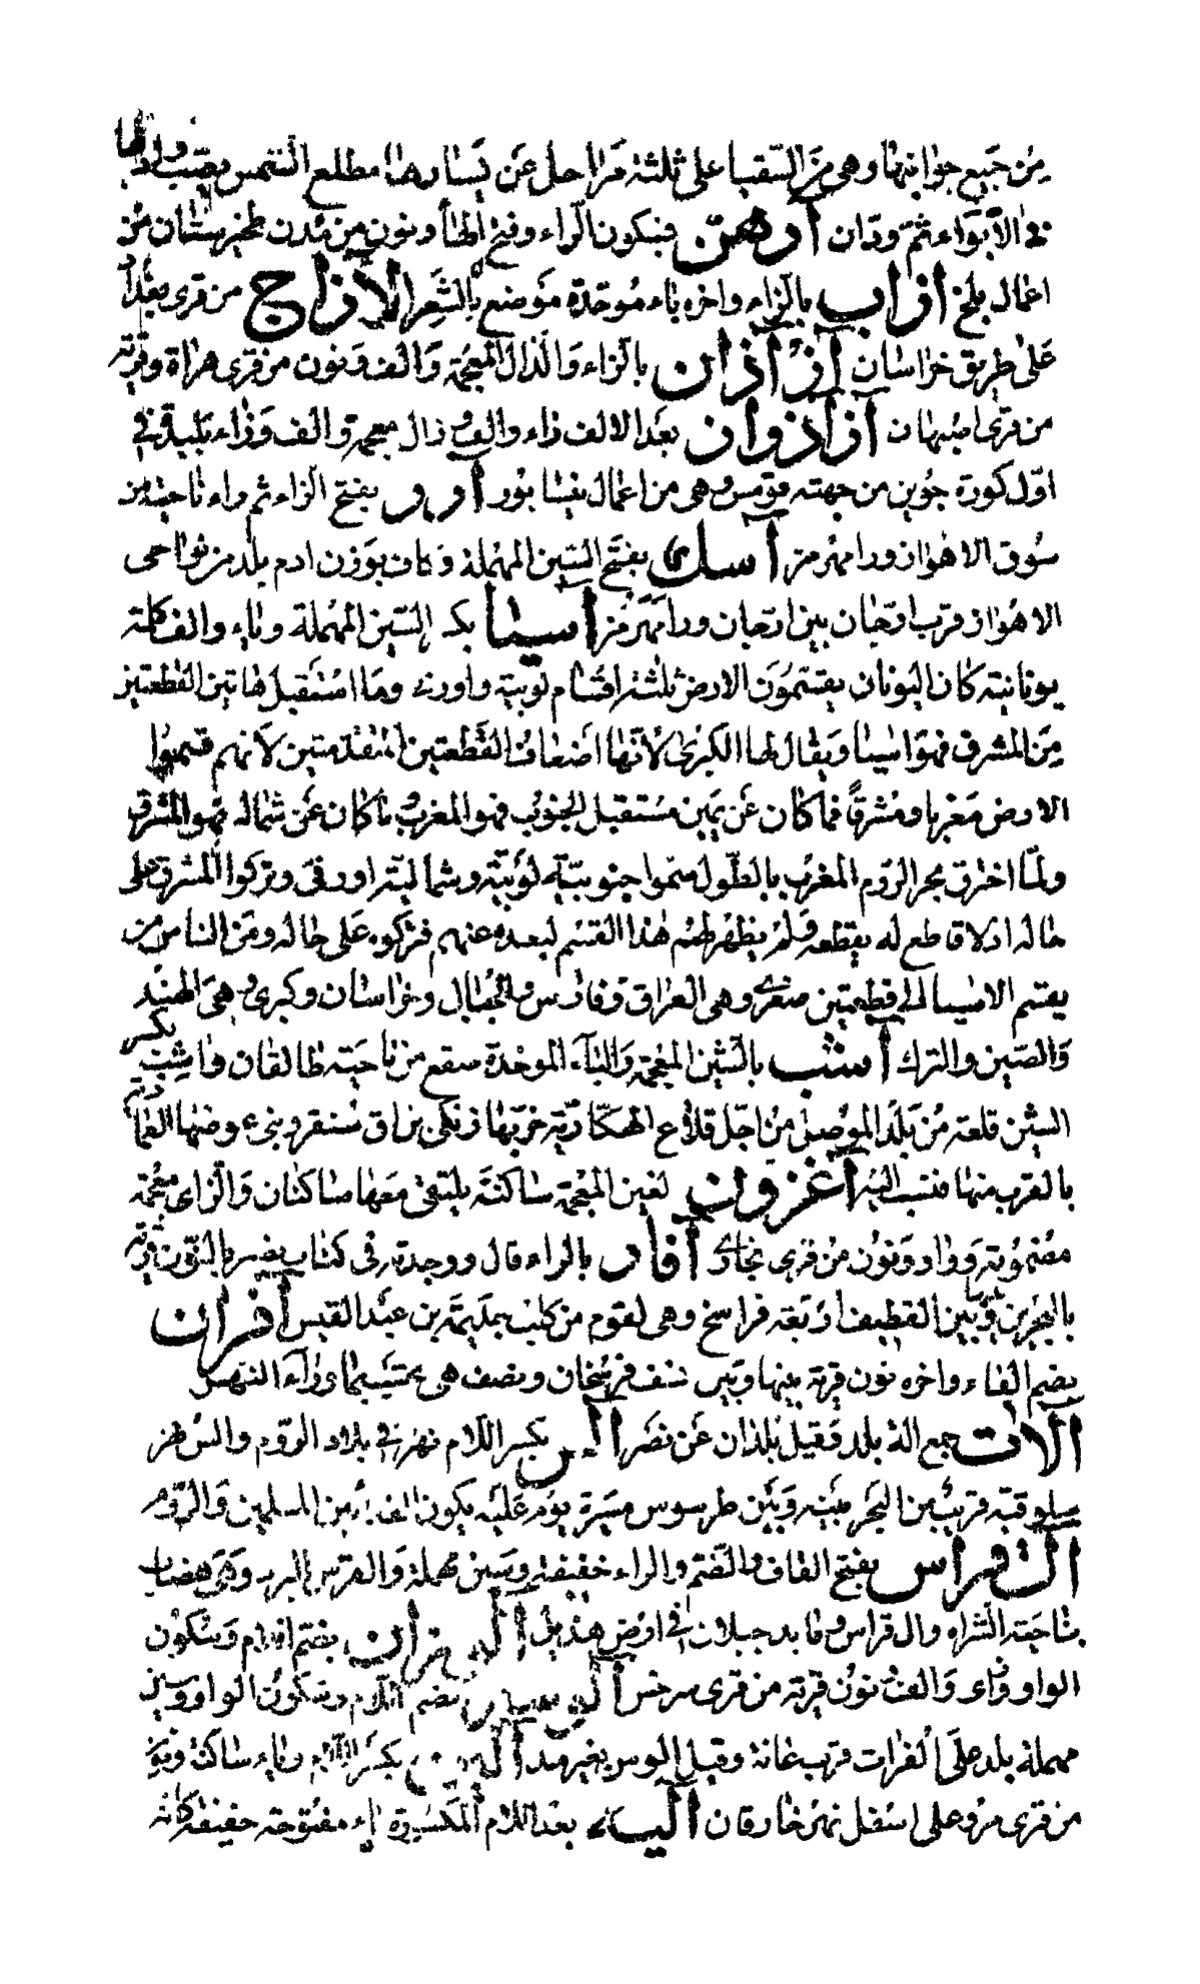 من جميع جوانبها وهى من السقيا على ثلثة مراحل عن يسارها مطلع الشمس
فى الابواء ثم ودان آرهن بسكون الراء وفتح الهاء ونون من مدن طخرستان من
اعمال بلخ آزاب بالزاى واخره باء موحدة موضع بالشعر الآزاج من قرى بغداد
على طريق خراسان آزاذان بالزاء والذال المعجمة والف ونون من قرى هراة وقرية
من قرى اصبهان آزاذوار بعد الالف زاء والف وذال معجمة والف وراء بليدة فى
اول كورة جوين من جهته قومس وهى من اعمال نيسابور آزر بفتح الزاء ثم راء ناحية من
سوق الاهواز ورامهرمز آسك بفتح السين المهملة وكاف بوزن ادم بلد من نواحى
الاهواز قرب ارجان بين ارجان ورامهرمز آسيا بكسر السين المهملة وياء والف كلمة
يونانية كان اليونان يقسمون الارض ثلثة اقسام لوبية واورفى وما استقبل هاتين القطعتين
من المشرق فهو اسيا ويقال لها الكبرى لانها اضعاف القطعتين المتقدمتين لانهم قسموا
الارض مغربا ومشرقا فما كان عن يمين مستقبل الجنوب فهو المغرب وما كان عن شماله فهو المشرق
ولما اخترق بحر الروم المغرب بالطول سموا جنوبيّه لوبية وشماليته اورفى وتركوا المشرق على
حاله اذ لا قاطع له يقطعه فلم يظهر لهم هذا القسم لبعده عنهم فتركوه على حاله ومن الناس من
يقسم الاسيا الى قطعتين صغرى وهى العراق وفارس والجبال وخراسان وكبرى وهى الهند
والصين والترك آشب بالشين المعجمة والباء الموحدة صقع من ناحية طالقان واشب بكسر
الشين قلعة من بلد الموصل من اجل قلاع الهكارية خربها زنكى بن اق سنقر وبنى عوضها العمادية
بالقرب منها فنسب اليه آغزون الغين المعجمة ساكنة يلتقى معها ساكنان والزاى معجمة
مضمومة وواو ونون من قرى بخارى آفار بالراء قال ووجدته فى كتاب نصر بالنون قرية
بالبحرين بينها وبين القطيف اربعة فراسخ وهى لقوم من كلب بن جذيمة بن عبد القيس آفران
بضم الفاء واخره نون قرية بينها وبين نسف فرسخان ونصف هى بما وراء النهر
آلات جمع آلة بلد وقيل بلدان عن نصر آلس بكسر اللام نهر فى بلاد الروم والس نهر
سلوقية قريب من البحر بينه وبين طرسوس مسيرة يوم عليه يكون الفداء بين المسلمين والروم
آل قراس بفتح القاف والضم والراء خفيفة وسين مهملة والقرس البرد وهى هضاب
بناحية السراه وال قراس وقابد جبلان فى ارض هذيل آلوزان بضم اللام وسكون
الواو وزاى والف ونون قرية من قرى سرخس آلوس بضم اللام وسكون الواو وسين
مهملة بلد على الفرات قرب عانة وقيل الوس بغير مد آلين بكسر اللام وياء ساكنة ونون
من قرى مرو على اسفل نهر خارقان آلية بعد اللام المكسورة ياء مفتوحة خفيفة كانه